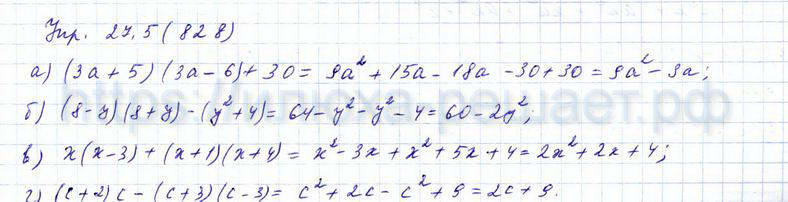 Упр. 27.5 (828)
а) (3a + 5)(3a - 6) + 30 = 9a² + 15a - 18a - 30 + 30 = 9a² - 3a;
б) (8 - y)(8 + y) - (y² + 4) = 64 - y² - y² - 4 = 60 - 2y²;
в) x(x - 3) + (x + 1)(x + 4) = x² - 3x + x² + 5x + 4 = 2x² + 2x + 4;
г) (c + 2)c - (c + 3)(c - 3) = c² + 2c - c² + 9 = 2c + 9.